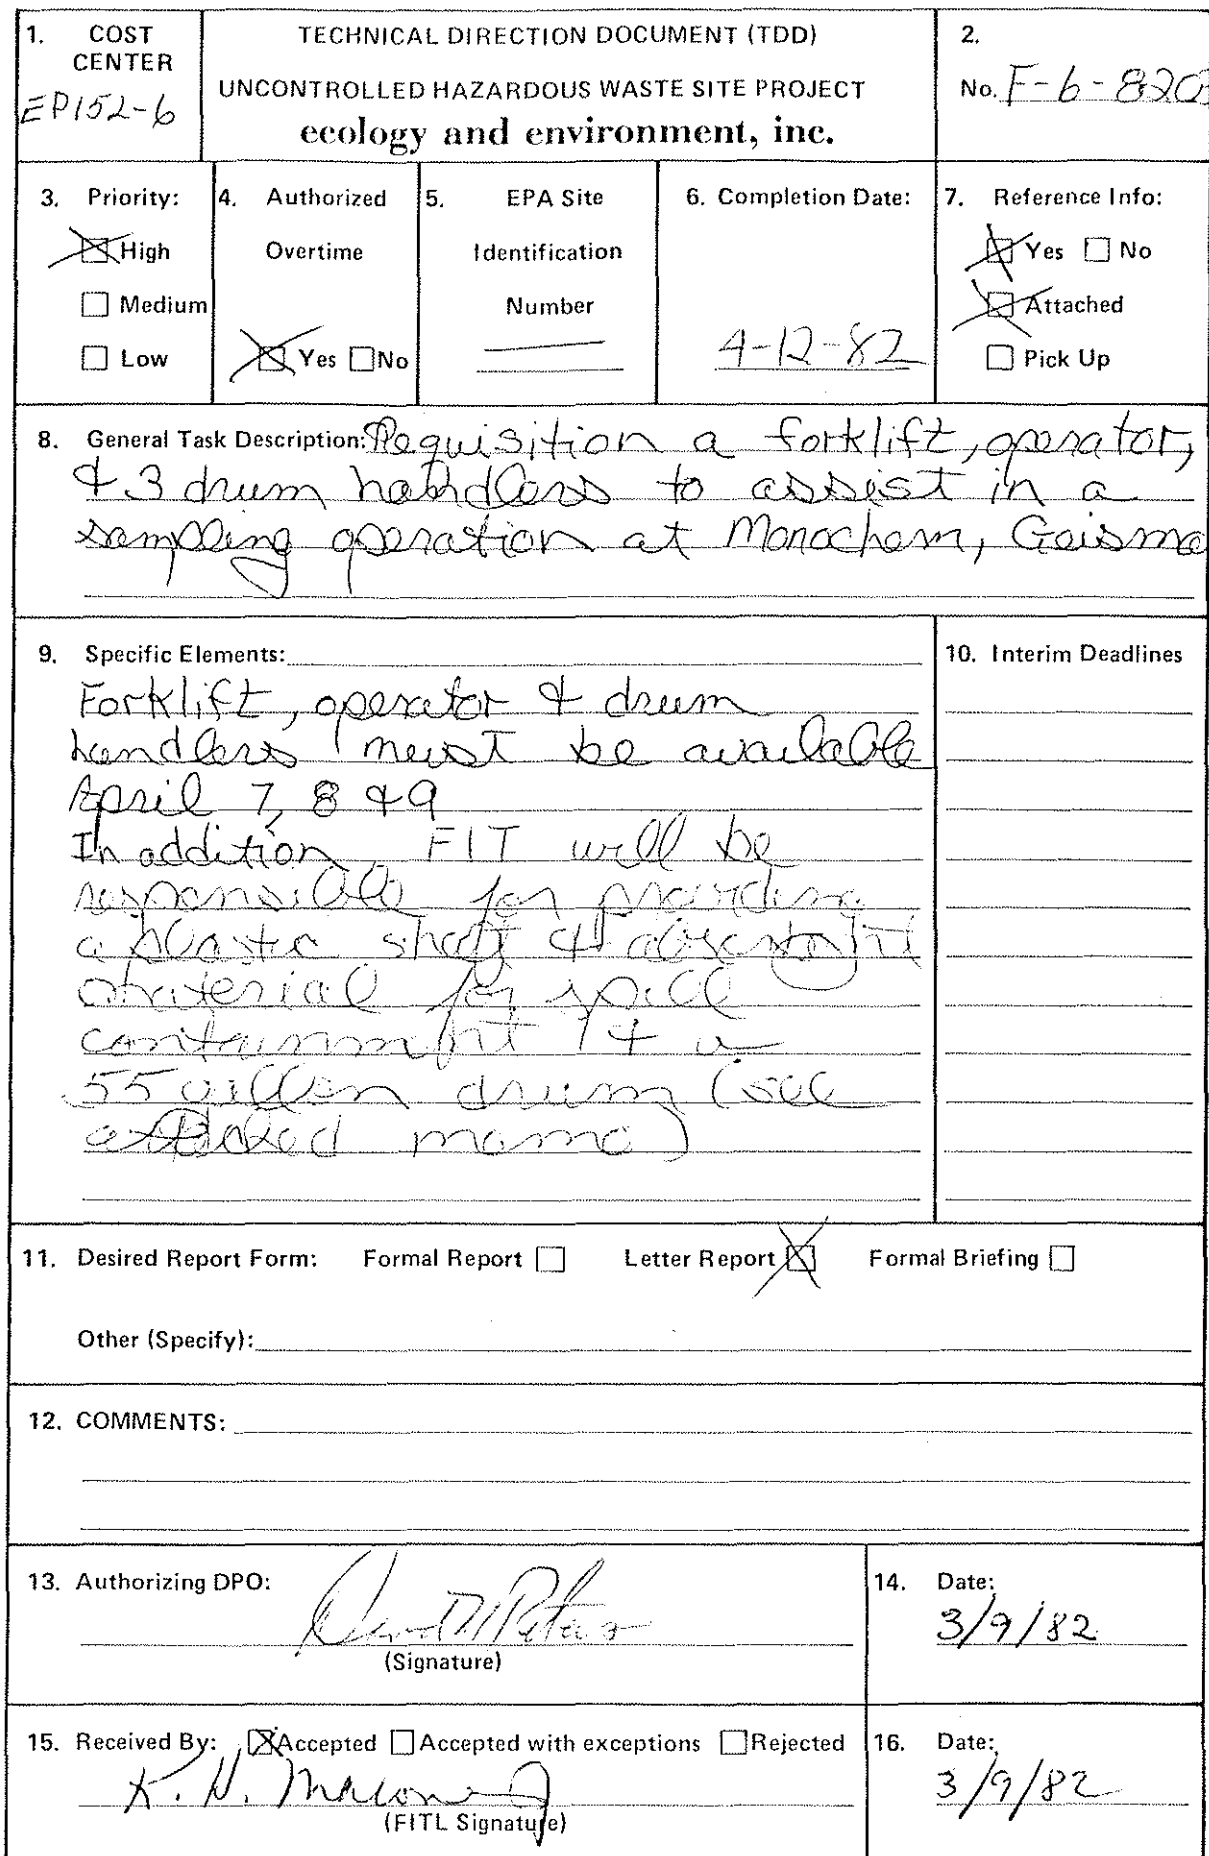 1. COST CENTER
EP152-6
TECHNICAL DIRECTION DOCUMENT (TDD)
UNCONTROLLED HAZARDOUS WASTE SITE PROJECT
ecology and environment, inc.
2.
No. F-6-820
3. Priority:
High
Medium
Low
4. Authorized
Overtime
Yes No
5. EPA Site
Identification
Number
6. Completion Date:
4-12-82
7. Reference Info:
Yes No
Attached
Pick Up
8. General Task Description: Requisition a forklift, operator,
& 3 drum handlers to assist in a
sampling operation at Monochem, Geisma
9. Specific Elements:
Forklift, operator & drum
handlers must be available
April 7, 8 & 9
In addition, FIT will be
responsible for providing
a plastic sheet & absorbent
material for spill
containment & a
55 gallon drum (see
attached memo)
10. Interim Deadlines
11. Desired Report Form: Formal Report Letter Report Formal Briefing
Other (Specify):
12. COMMENTS:
13. Authorizing DPO:
(Signature)
14. Date:
3/9/82
15. Received By: Accepted Accepted with exceptions Rejected
K. H. Malone
(FITL Signature)
16. Date:
3/9/82